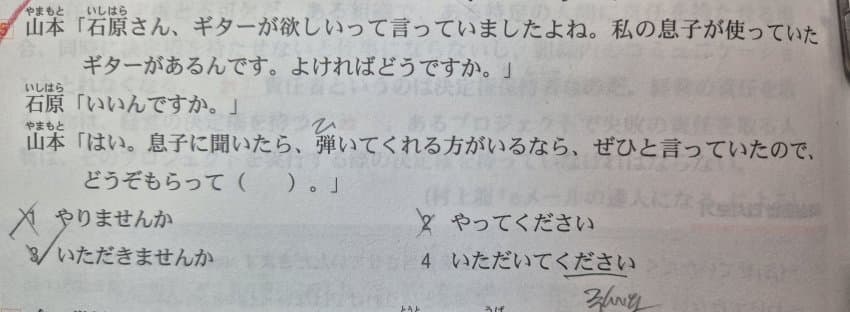 山本「石原さん、ギターが欲しいって言っていましたよね。私の息子が使っていた
ギターがあるんです。よければどうですか。」
石原「いいんですか。」
山本「はい。息子に聞いたら、弾いてくれる方がいるなら、ぜひと言っていたので、
どうぞもらって（　　）。」
1 やりませんか
2 やってください
3 いただきませんか
4 いただいてください